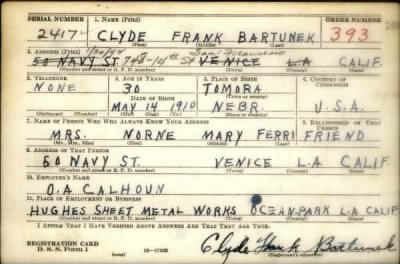 SERIAL NUMBER 1. NAME (Print) ORDER NUMBER
2417 CLYDE FRANK BARTUNEK 393
(First) (Middle) (Last)
2. ADDRESS (Print)
San Francisco
50 NAVY ST 748-14th St VENICE L.A CALIF.
(Number and street or R. F. D. number) (Town) (County) (State)
3. TELEPHONE 4. AGE IN YEARS 5. PLACE OF BIRTH 6. COUNTRY OF CITIZENSHIP
NONE 30 TOMORA
DATE OF BIRTH (Town or county)
MAY 14 1910 NEBR. U.S.A.
(Mo.) (Day) (Yr.) (State or country)
7. NAME OF PERSON WHO WILL ALWAYS KNOW YOUR ADDRESS 8. RELATIONSHIP OF THAT PERSON
MRS. NORNE MARY FERRI FRIEND
(Mr., Mrs., Miss) (First) (Middle) (Last)
9. ADDRESS OF THAT PERSON
50 NAVY ST. VENICE L.A CALIF.
(Number and street or R. F. D. number) (Town) (County) (State)
10. EMPLOYER'S NAME
O.A CALHOUN
11. PLACE OF EMPLOYMENT OR BUSINESS
HUGHES SHEET METAL WORKS OCEAN-PARK L.A CALIF
(Number and street or R. F. D. number) (Town) (County) (State)
I AFFIRM THAT I HAVE VERIFIED ABOVE ANSWERS AND THAT THEY ARE TRUE.
REGISTRATION CARD
D. S. S. Form 1 16—17105 Clyde Frank Bartunek
(Registrant's signature)